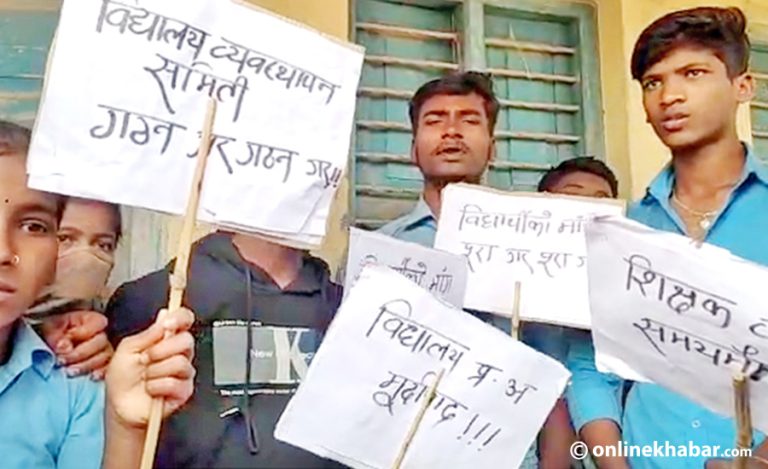 विद्यालय व्यवस्थापन
समिती
गठन गर गठन गर!!
विद्यार्थीको माँग
पूरा गर पूरा ग
को माँग
विद्यालय प्र.अ
मूर्दावाद!!!
शिक्षक
समयमै
New
K
© onlinekhabar.com